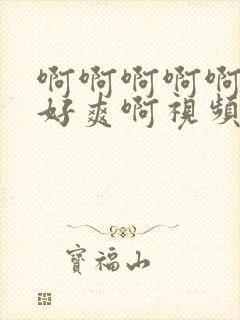 啊啊啊啊啊
好爽啊視頻
寶福山